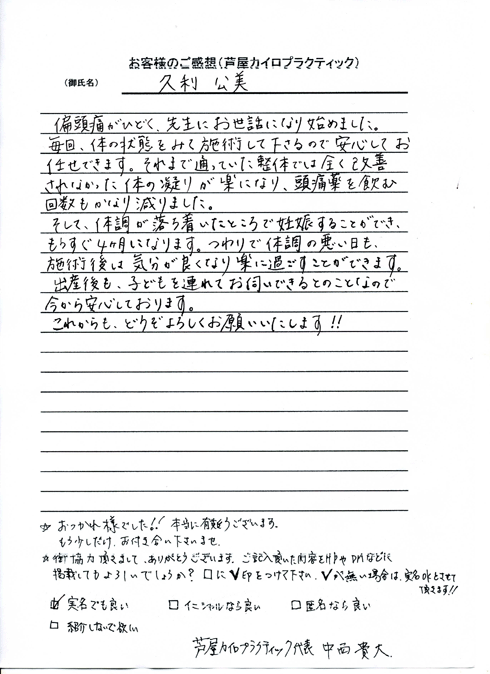 お客様のご感想(芦屋カイロプラクティック)
(御氏名) 久利 公美
偏頭痛がひどく、先生にお世話になり始めました。
毎回、体の状態をみて施術して下さるので安心してお
任せできます。それまで通っていた整体では全く改善
されなかった体の凝りが楽になり、頭痛薬を飲む
回数もかなり減りました。
そして、体調が落ち着いたところで妊娠することができ、
もうすぐ4ヶ月になります。つわりで体調の悪い日も、
施術後は気分が良くなり楽に過ごすことができます。
出産後も、子どもを連れてお伺いできるとのことなので
今から安心しております。
これからも、どうぞよろしくお願いいたします!!
☆ おつかれ様でした!! 本当に有難うございます。
もう少しだけ、お付き合い下さいませ。
☆御協力頂きまして、ありがとうございます。ご記入頂いた内容をHPやDMなどに
掲載してもよろしいでしょうか? □に✓印をつけて下さい。✓が無い場合は、実名OKとさせて
頂きます!!
☑ 実名でも良い □ イニシャルなら良い □ 匿名なら良い
□ 紹介しないで欲しい
芦屋カイロプラクティック代表 中西 貴大